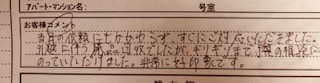 アパート・マンション名 号室
お客様コメント
当日の依頼にもかかわらず、すぐにご対応いただきました。
引越に伴う廃品回収でしたが、ギリギリまで個数の相談に
のっていただけました。非常に好印象です。